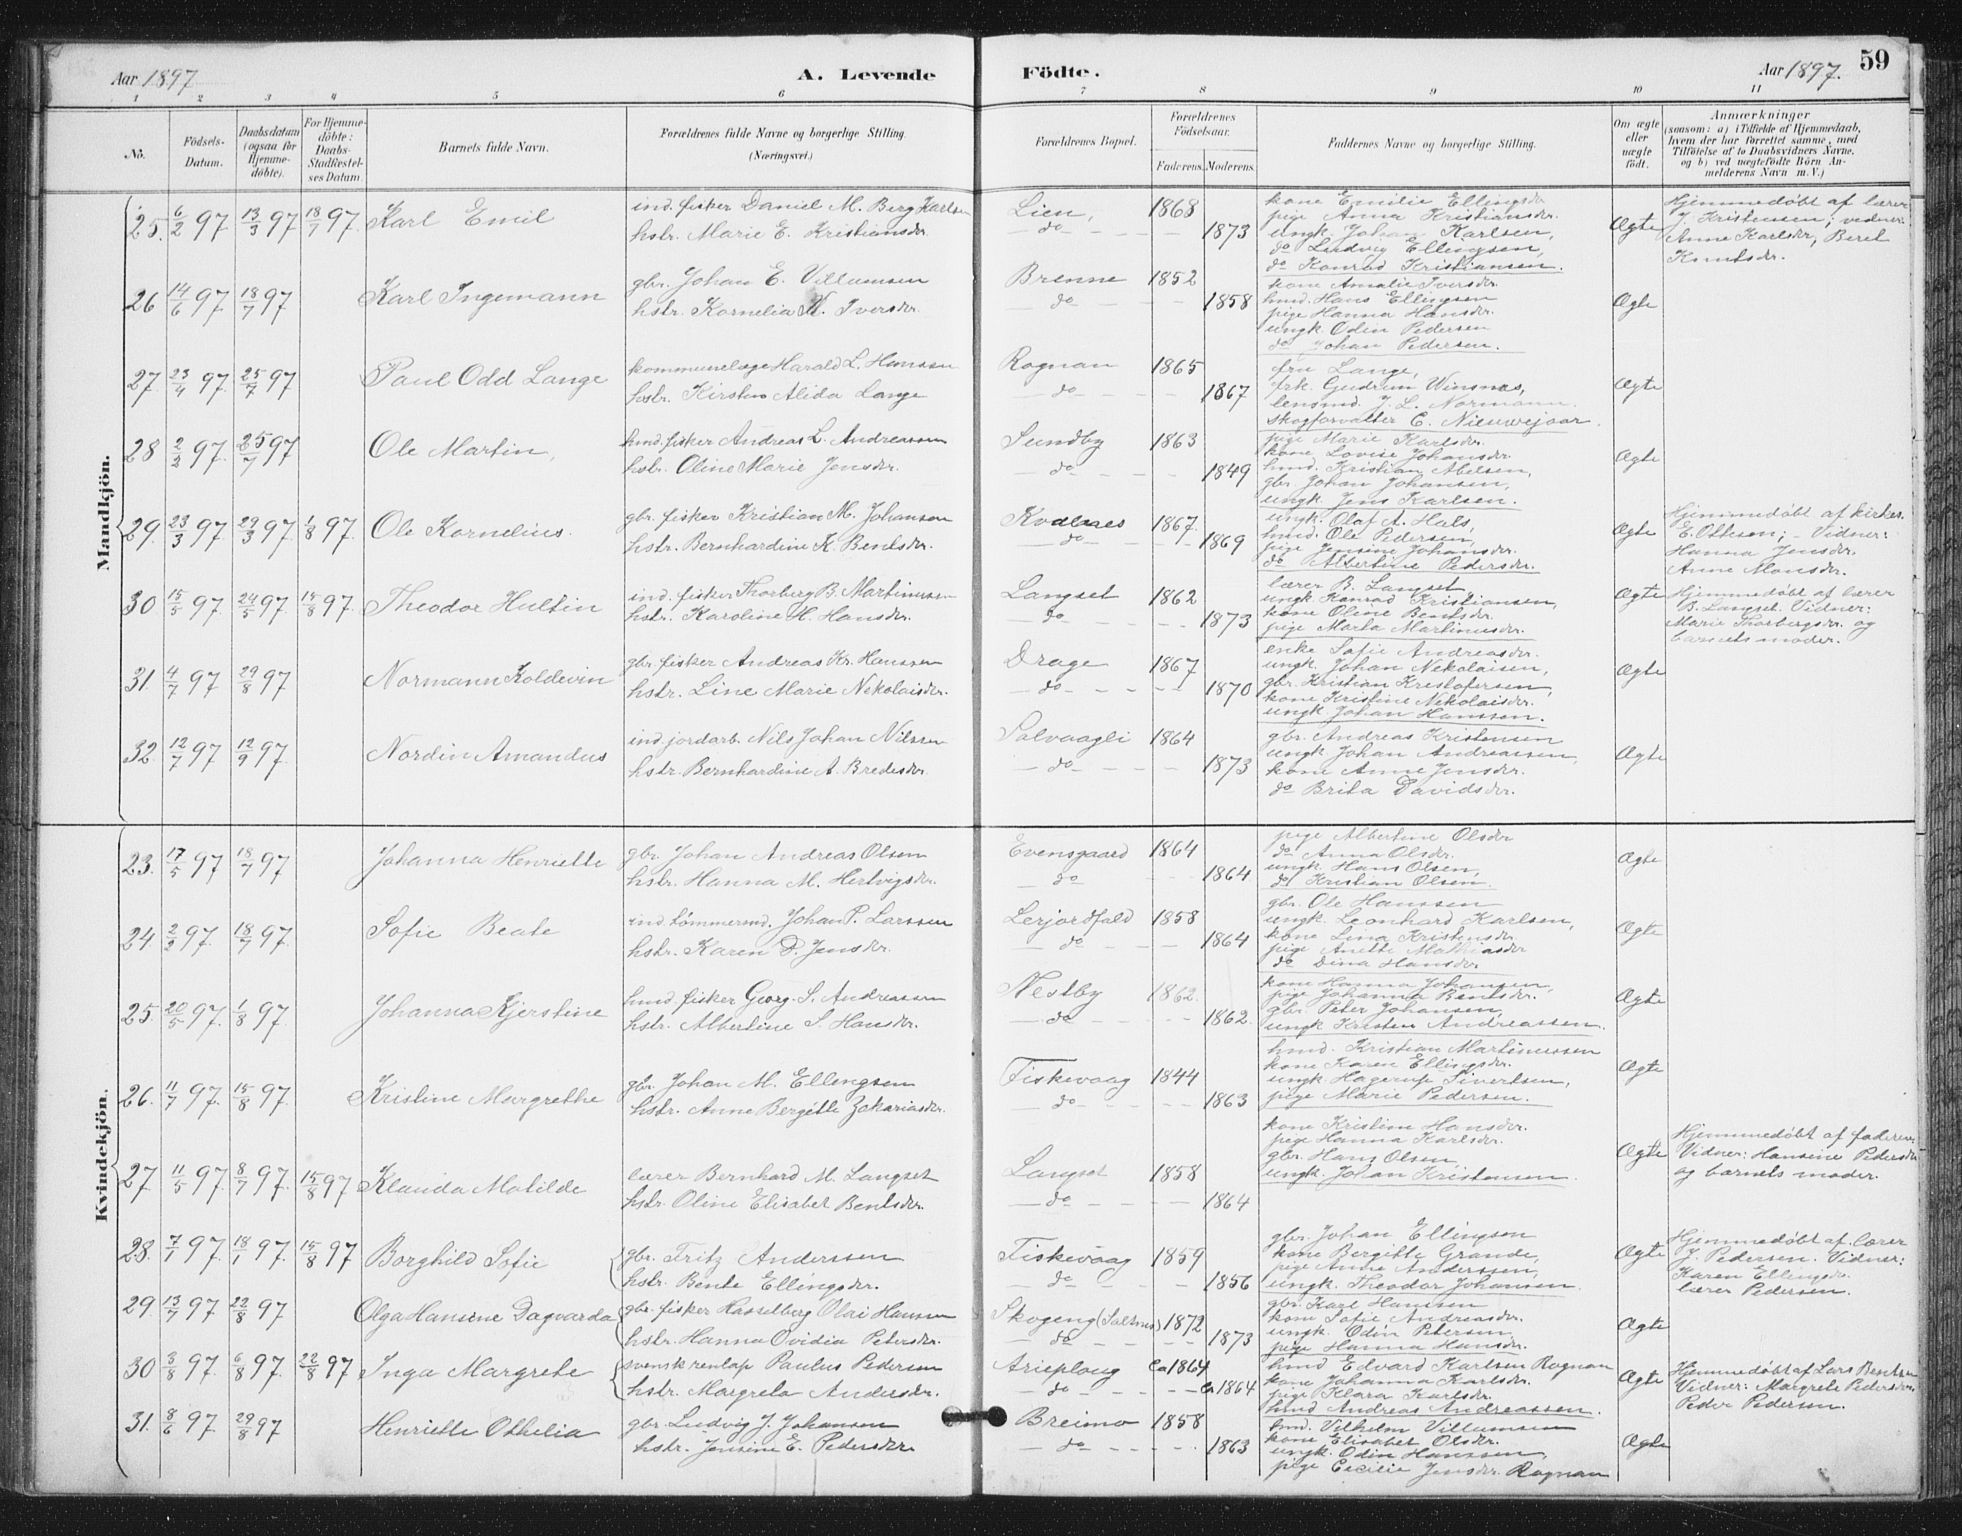 Aar 1897
A. Levende
Födte.
Aar 1897.
59
1 2 3 4 5 6 7 8 9 10 11
No.
Födsels-
Datum.
Daabsdatum
(ogsaa for
Hjemme-
döbte).
For Hjemme-
döbte:
Daabs-
Stadfæstel-
ses Datum.
Barnets fulde Navn.
Forældrenes fulde Navne og borgerlige Stilling.
(Næringsvei.)
Forældrenes Bopæl.
Forældrenes
Födselsaar.
Faderens. Moderens.
Faddernes Navne og borgerlige Stilling.
Om ægte
eller
uægte
födt.
Anmærkninger
(saasom: a) i Tilfælde af Hjemmedaab,
hvem der har forrettet samme, med
Tilföielse af to Daabsvidners Navne,
og b) ved uægtefödte Börn An-
melderens Navn m. V.)
Mandkjön.
25. 6/2 97 13/3 97 18/7 97. Karl Emil
ind. fisker Daniel M. Berg Karlsen
hstr. Marie E. Kristiansdr.
Lien, 1868
do 1873
kone Emilie Ellingsdr
pige Anna Kristiansdr.
ungk. Johan Karlsen,
do Ludvig Ellingsen,
do Konrad Kristiansen.
Ægte
Hjemmedøbt af lærer
J. Kristensen; vidner:
Anne Karlsdr, Beret
Knutsdr.
26 14/6 97 18/7 97 Karl Ingemann
gbr. Johan E. Villumsen
hstr. Kornelia K. Iversdr.
Brenne 1852
do 1858
kone Amalie Iversdr.
hmd. Hans Ellingsen
pige Hanna Hansdr.
ungk Odin Pedersen
do Johan Pedersen.
Ægte
27 23/4 97. 25/7 97 Paul Odd Lange
kommunelæge Harald L. Hanssen
hstr. Kirsten Alida Lange
Rognan 1865
do 1867
fru Lange,
frk. Gudrun Winsnes,
lensmd. J. L. Normann.
skogforvalter C. Nieuwejaar.
Ægte
28 2/2 97. 25/7 97 Ole Martin,
hmd. fisker Andreas L. Andreassen
hstr. Oline Marie Jensdr.
Sundby 1863
do 1849
pige Marie Karlsdr.
kone Lovise Johansdr.
hmd. Kristian Abelsen,
gbr. Johan Johansen,
ungk. Jens Karlsen.
Ægte
29. 23/3 97 29/3 97 1/8 97. Ole Kornelius.
gbr. fisker Kristian M. Johansen
hstr. Bernhardine K. Bentsdr.
1867.
do 1869
ungk. Olaf A. Hals,
hmd. Ole Pedersen,
pige Jensine Johansdr.
do Albertine Pedersdr.
Ægte
Hjemmedøbt af kirkes.
E. Ottesen; - Vidner:
Hanna Jensdr.
Anne Monsdr.
30 15/5 97. 24/5 97. 15/8 97. Theodor Hultin
ind. fisker Thorberg B. Martinussen
hstr. Karoline H. Hansdr.
Langset 1862
do 1873
lærer B. Langset
ungk. Konrad Kristiansen,
kone Oline Bentsdr.
pige Marta Martinusdr.
Ægte
Hjemmedøbt af lærer
B. Langset. Vidner:
Marie Thorbergsdr. og
barnets moder.
31. 4/7 97 29/8 97 Normann Koldevin
gbr. fisker Andreas Kr. Hanssen
hstr. Line Marie Nekolaisdr.
Drage 1867
do 1870
enke Sofie Andreasdr.
ungk. Johan Nekolaisen,
gbr. Kristian Kristofersen,
kone Kristine Nekolaisdr.
ungk. Johan Hanssen.
Ægte
32. 12/7 97 12/9 97. Nordin Amandus
ind. jordarb. Nils Johan Nilssen
hstr. Bernhardine A. Bredesdr.
Solvaagli 1864
do 1873
gbr. Andreas Kristensen
ungk. Johan Andreassen,
kone Anne Jensdr.
do Brita Davidsdr.
Ægte
Kvindekjön.
23. 17/5 97 18/7 97 Johanna Henriette
gbr. Johan Andreas Olsen
hstr. Hanna M. Hertvigsdr.
Evensgaard 1864
do 1864
pige Albertine Olsdr
do Anna Olsdr.
ungk. Hans Olsen,
do Kristian Olsen.
Ægte
24. 2/2 97. 18/7 97. Sofie Beate
ind. tømmermd. Johan P. Larssen
hstr. Karen D. Jensdr.
Lerjordfald 1858
do 1864
gbr. Ole Hanssen
ungk. Leonhard Karlsen,
kone Lina Kristensdr.
pige Anette Mathiasdr
do Dina Hansdr.
Ægte
25. 20/5 97. 1/8 97. Johanna Kjerstine
hmd. fisker Georg S. Andreassen
hstr. Albertine S. Hansdr.
Nestby 1862.
do 1862.
kone Hanna Johansen,
pige Johanna Bentsdr.
gbr. Peter Johansen,
ungk Kristen Andreassen.
Ægte
26. 11/7 97. 15/8 97. Kristine Margrethe
gbr. Johan M. Ellingsen
hstr. Anne Bergitte Zakariasdr.
Fiskevaag 1844
do 1863
hmd. Kristian Martinussen
kone Karen Ellingsdr.
ungk. Hagerup Sivertsen,
pige Marie Pedersen.
Ægte
27 11/5 97. 8/7 97. 15/8 97 Klauda Matilde
lærer Bernhard M. Langset
hstr. Oline Elisabet Bentsdr.
Langset 1858
do 1864
kone Kristine Hansdr.
pige Hanna Karlsdr.
gbr. Hans Olsen,
ungk. Johan Kristensen.
Ægte
Hjemmedøbt af faderen.
Vidner: Hansine Pedersdr
og barnets moder.
28. 7/1 97. 18/1 97. 15/8 97 Borghild Sofie
gbr. Fritz Anderssen
hstr. Bente Ellingsdr.
Fiskevaag 1859
do 1856
gbr. Johan Ellingsen
kone Bergitte Grande,
pige Anne Anderssen,
ungk. Theodor Johansen.
Ægte
Hjemmedøbt af. lærer
J. Pedersen. Vidner:
Karen Ellingsdr.
lærer Pedersen.
29. 13/7 97 22/8 97. Olga Hansine Dagvarda
gbr. fisker Hasselberg Olai Hansen
hstr. Hanna Ovidia Petersdr.
Skogeng (Saltnes) 1872
do 1873
gbr. Karl Hanssen
kone Sofie Andreasdr.
ungk. Odin Petersen
pige Hanna Hansdr.
Ægte
30 3/8 97. 6/8 97. 22/8 97 Inga Margrete
svensk renlap Paulus Pedersen
hstr. Margreta Andersdr.
Arieploug Ca 1864
do Ca 1864
hmd Edvard Karlsen Rognan
kone Johanna Karlsdr.
pige Klara Karlsdr.
hmd Andreas Andreassen.
Ægte
Hjemmedøbt af Lars Bentsen
Vidner: Margrete Pedersdr.
Peder Pedersen.
31. 8/6 97. 29/8 97. Henriette Othelia
gbr Ludvig J. Johansen
hstr. Jensine E. Pedersdr.
Breimo 1858
do 1863
hmd. Vilhelm Villumsen
kone Elisabet Olsdr.
ungk. Odin Hanssen,
pige Cecilie Jensdr. Rognan
Ægte